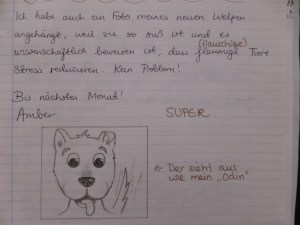 Ich habe auch ein Foto meines neuen Welpen
angehängt, weil sie so süß ist und es
(flauschige)
wissenschaftlich bewiesen ist, dass flaumige Tiere
Stress reduzieren. Kein Problem!
Bis nächsten Monat!
Amber
SUPER
Der sieht aus
wie mein „Odin“